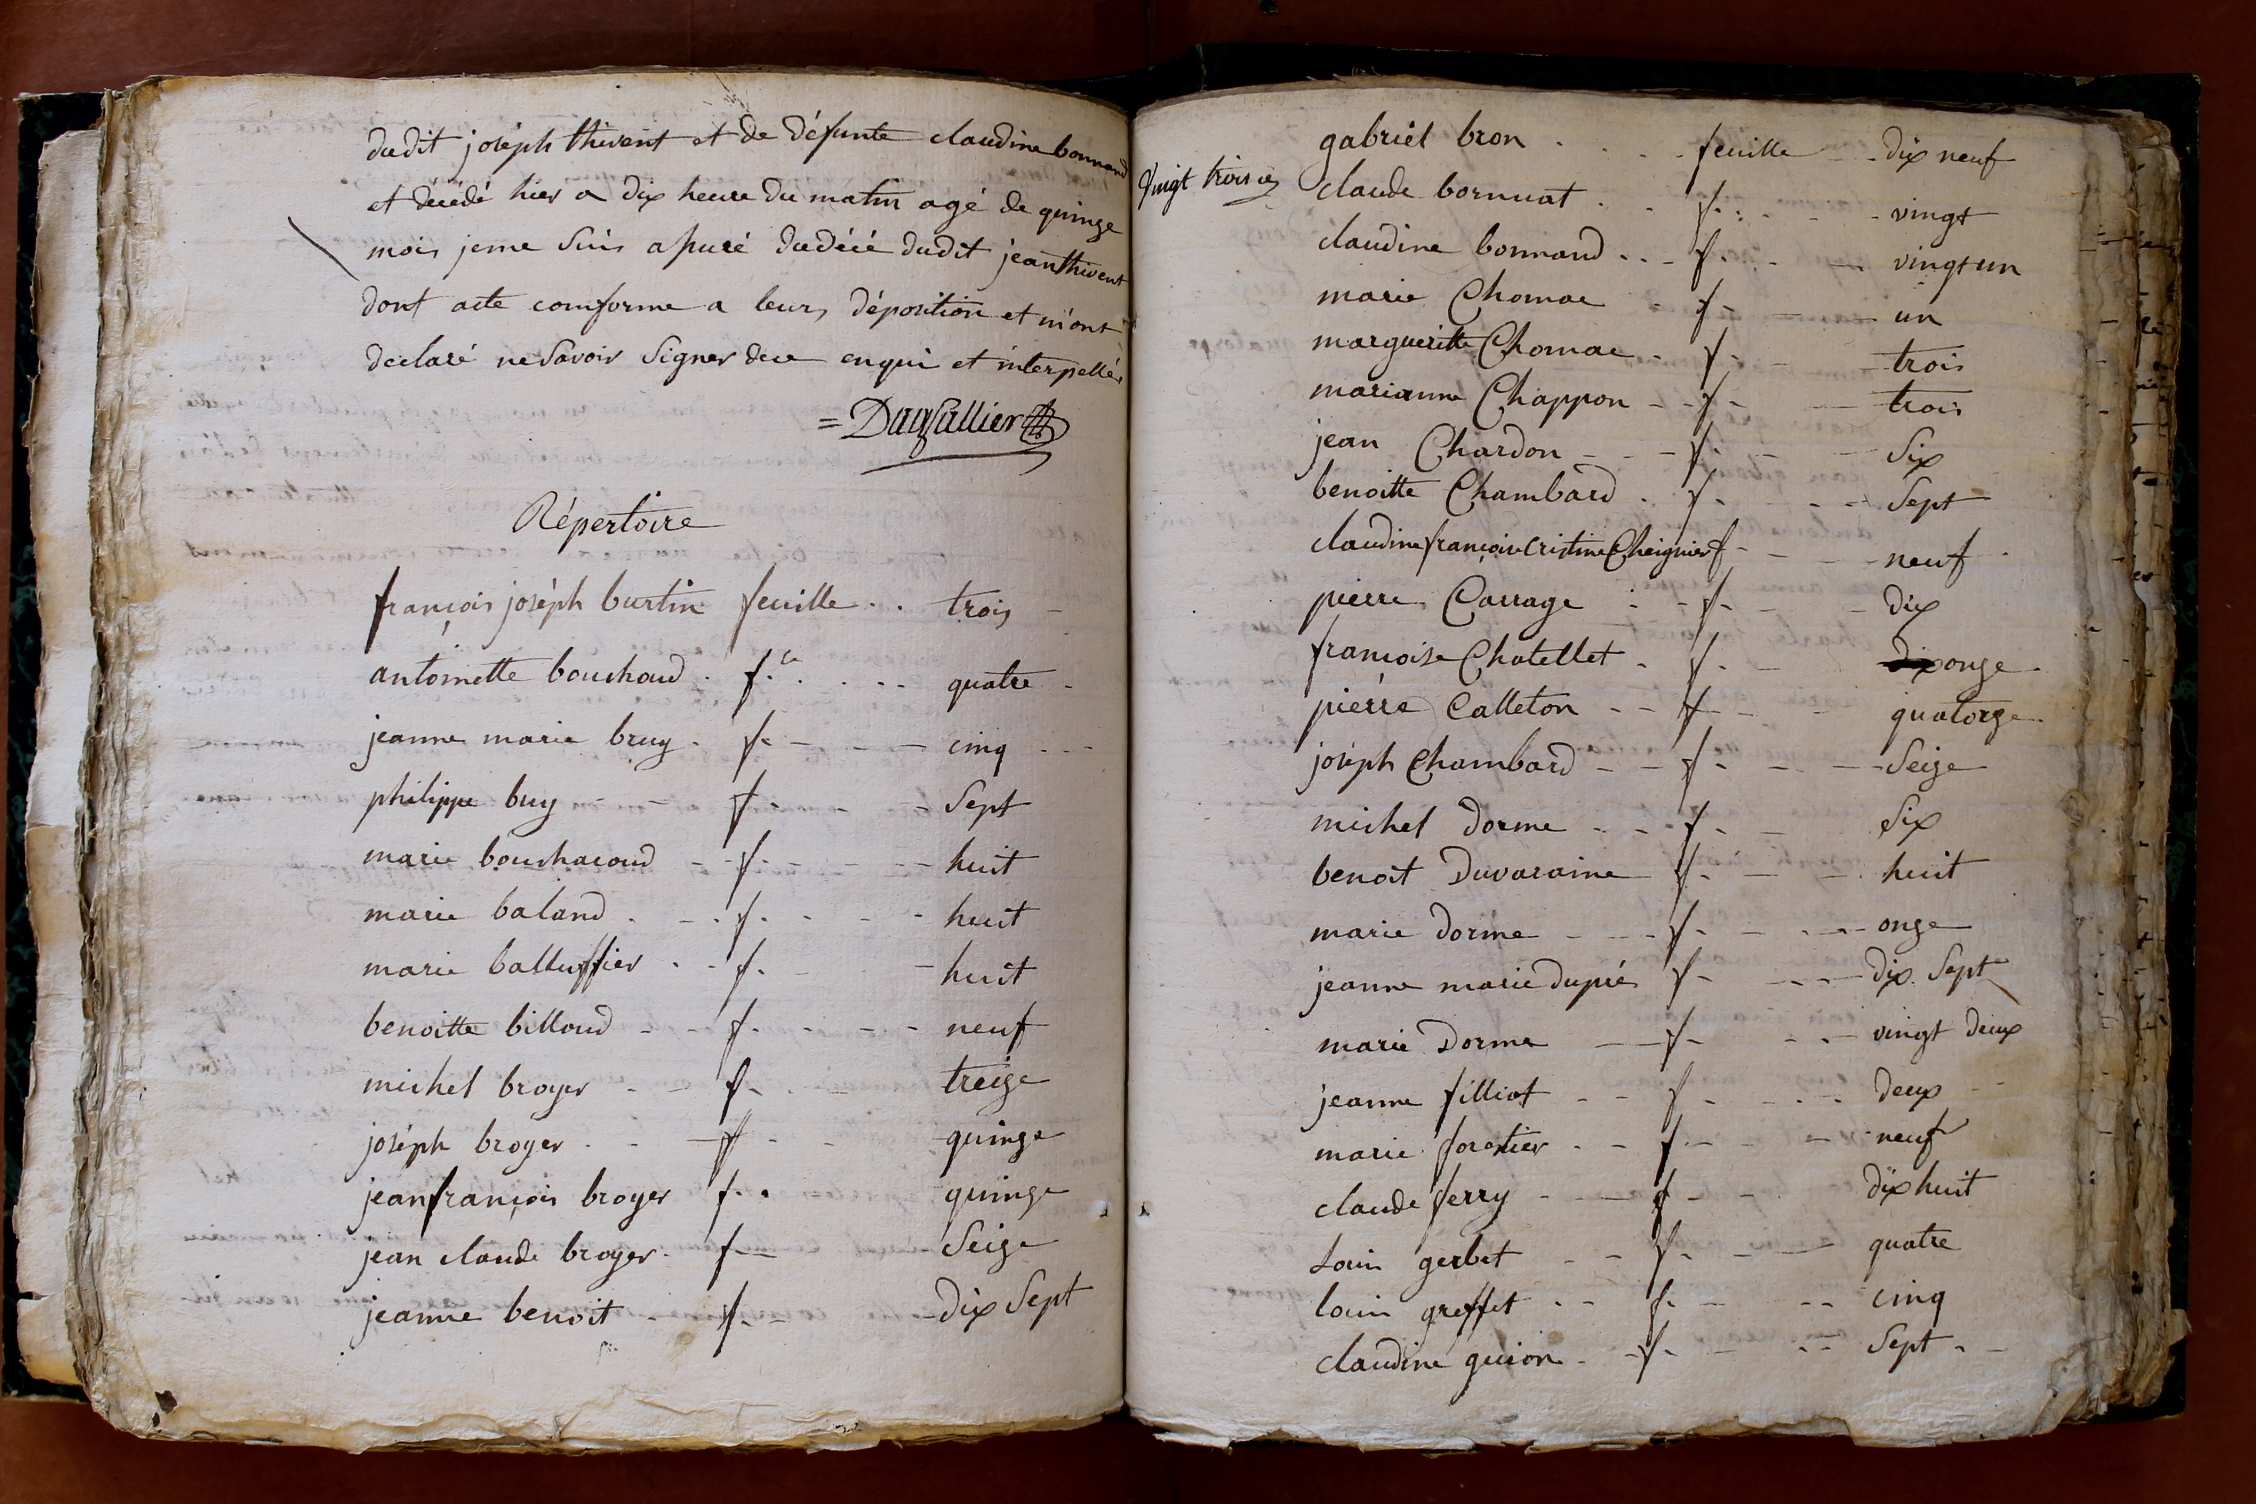 dudit joséph thivent et de défunte claudine bonnand
et décédé hier a dix heure du matin agé de quinze
mois jeme suis assuré dudécé dudit jean thivent
dont acte comforme a leurs déposition et m'ont
declaré ne savoir signer dece enqui et interpellés
= Dagallier
Répertoire
françois joséph burtin feuille . . trois -
antoinette bouchoud . f.lle . . . . quatre -
jeanne marie bruy . f. - - - cinq - - -
philippe buy - - f. - - - Sept
marie bouchacoud - - f. - - - huit
marie baland . - . f. - - - huit
marie balluffier . - f. - huit
benoitte billoud - - - f. - - - neuf
michel broyer - - f. - - treize
joséph broyer . - - f. - - quinze
jean françois broyer f. . quinze
jean claude broyer . f. - Seize
jeanne benoit . f. - dix Sept
Vingt trois e
gabriél bron . . . . feuille - . dix neuf
claude bornuat . . f. : - - - vingt
claudine bonnand . . - f. - - - vingt un
marie Chomae - f. - - - un
marguerite Chomae . f. - - trois
marianne Chappon - - f. - - trois
jean Chardon - - - f. - - Six
benoitte Chambard . f. - - - Sept
claudine françoise Cristine Cheignier f. - - - neuf
pierre Carrage : - f. - - dix
françoise Chatellet . f. - - dix onze
piérre Calleton - - f. - - quatorze
joséph Chambard - - f. - - - Seize
michel dorme - - - f. - - Six
benoit Duvaraine f. - - huit
marie dorme - - - - f. - - - onze
jeanne marie dupré f. - - - dix Sept
marie Dorme - - f. - - - vingt deux
jeanne filliot - - f. - - - deux
marie forestier . - - f. - - - neuf
claude ferry - - - f. - - dix huit
Louis gerbet - - f. - - quatre
louis greffet . - - f. - - - cinq
claudine guion . - f. - - - Sept . -